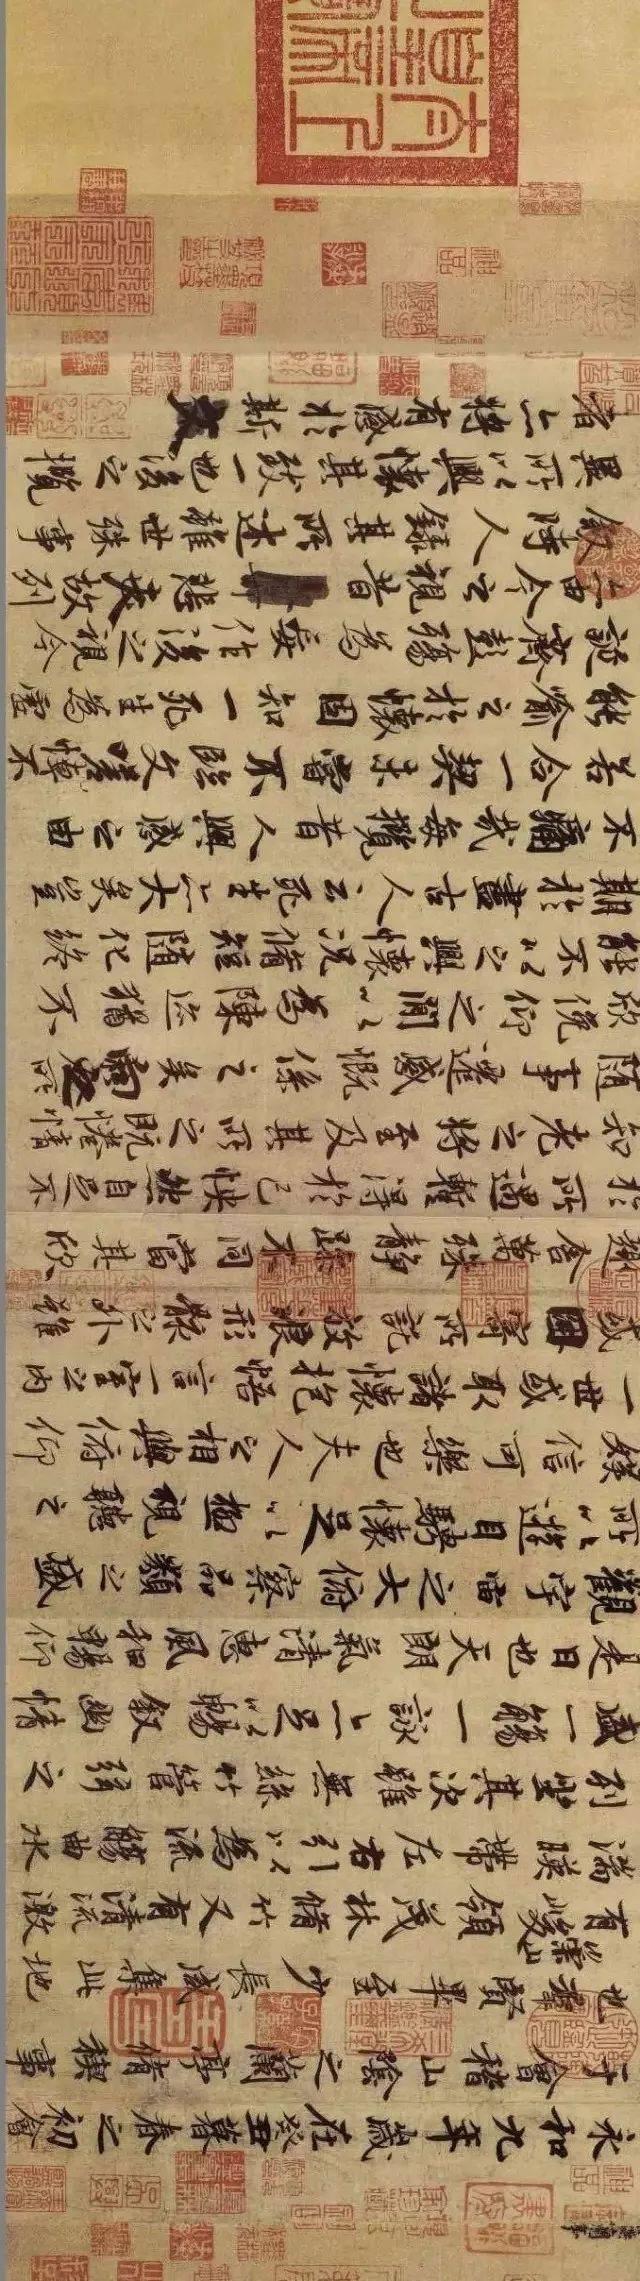 永和九年歲在癸丑暮春之初會
于會稽山陰之蘭亭脩稧事
也羣賢畢至少長咸集此地
有崇山峻領茂林脩竹又有清流激
湍暎帶左右引以為流觴曲水
列坐其次雖無絲竹管弦之
盛一觴一詠亦足以暢敘幽情
是日也天朗氣清惠風和暢仰
觀宇宙之大俯察品類之盛
所以遊目騁懷足以極視聽之
娛信可樂也夫人之相與俯仰
一世或取諸懷抱悟言一室之內
或因寄所託放浪形骸之外雖
趣舍萬殊靜躁不同當其欣
於所遇暫得於己怏然自足不
知老之將至及其所之既惓情
隨事遷感慨係之矣向之所
欣俛仰之閒以為陳迹猶不
能不以之興懷況脩短隨化終
期於盡古人云死生亦大矣豈
不痛哉每攬昔人興感之由
若合一契未甞不臨文嗟悼不
能喻之於懷固知一死生為虛
誕齊彭殤為妄作後之視今
亦由今之視昔悲夫故列
敘時人錄其所述雖世殊事
異所以興懷其致一也後之攬
者亦將有感於斯文